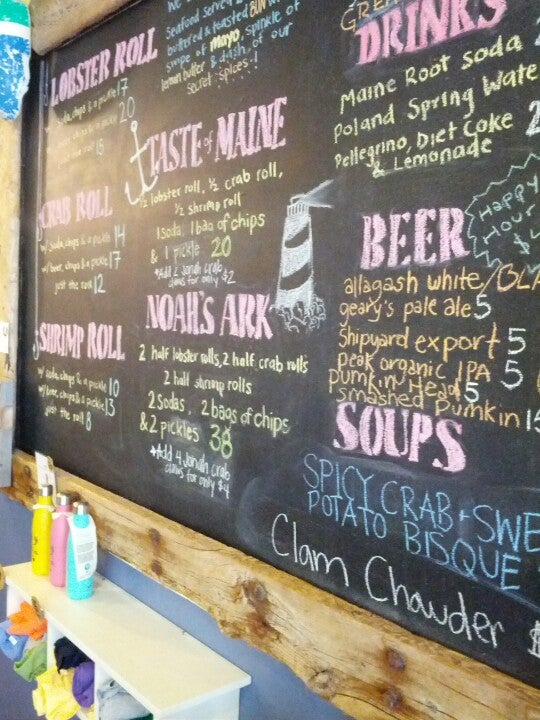 LOBSTER ROLL
w/ soda, chips & a pickle 17
chips & a pickle 20
just the roll 15
CRAB ROLL
w/ soda, chips & a pickle 14
w/ beer, chips & a pickle 17
just the roll 12
SHRIMP ROLL
w/ soda, chips & a pickle 10
w/ beer, chips & a pickle 13
just the roll 8
Seafood served
buttered & toasted BUN
swipe of Mayo, sprinkle of
lemon butter & dash of our
secret spices!
TASTE of MAINE
½ lobster roll, ½ crab roll,
½ shrimp roll
1 soda, 1 bag of chips
& 1 pickle 20
*Add 2 Jonah crab
claws for only $2
NOAH'S ARK
2 half lobster rolls, 2 half crab rolls
2 half shrimp rolls
2 sodas, 2 bags of chips
& 2 pickles 38
*Add 4 Jonah crab
claws for only $4
DRINKS
Maine Root soda
Poland Spring Wate
Pellegrino, Diet Coke
& Lemonade
BEER
Happy
Hour
allagash white/BLA
geary's pale ale 5
Shipyard export 5
peak organic IPA 5
Pumpkin Head 5
smashed Pumkin 15
SOUPS
SPICY CRAB + SWE
POTATO BISQUE
Clam Chawder $